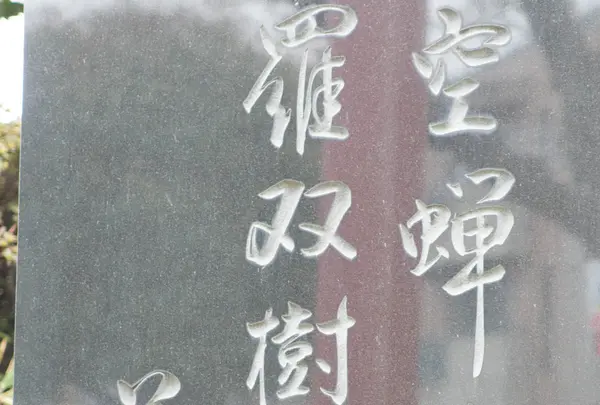 空蝉
羅双樹